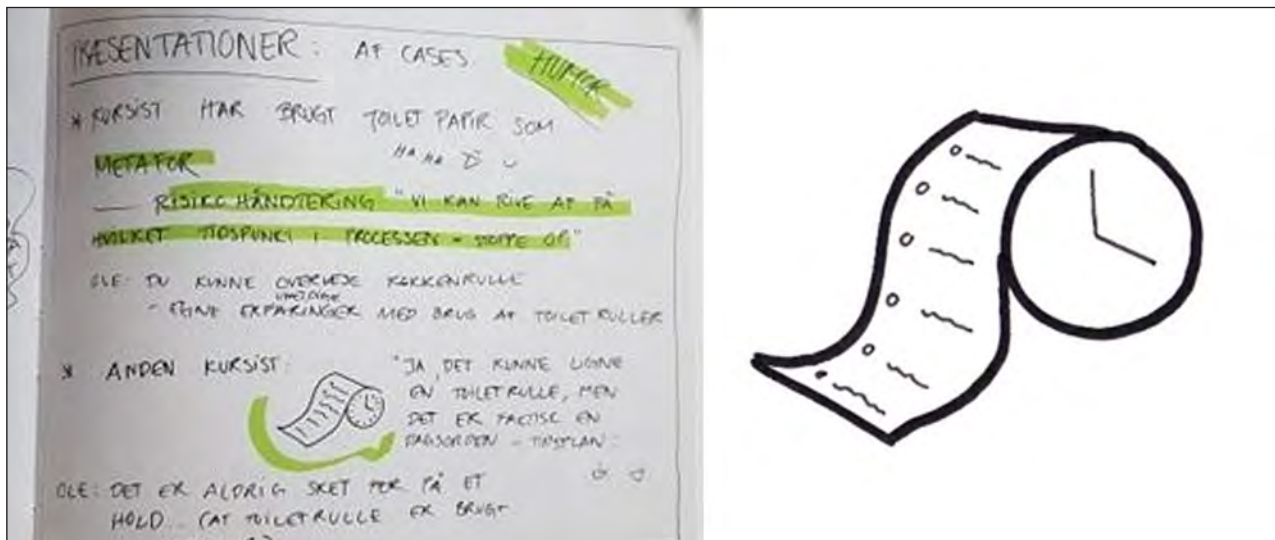 PRÆSENTATIONER: AF CASES
HUMOR
* KURSIST HAR BRUGT TOILET PAPIR SOM
METAFOR HA HA
— RISIKO HÅNDTERING "VI KAN RIVE AF PÅ
HVILKET TIDSPUNKT I PROCESSEN - STOPPE OP."
OLE: DU KUNNE OVERVEJE KØKKENRULLE
- EGNE ERFARINGER MED BRUG AF TOILETRULLER
* ANDEN KURSIST:
"JA, DET KUNNE LIGNE
EN TOILETRULLE, MEN
DET ER FAKTISK EN
DAGSORDEN - TIDSPLAN.
OLE: DET ER ALDRIG SKET FØR PÅ ET
HOLD... (AT TOILETRULLE ER BRUGT